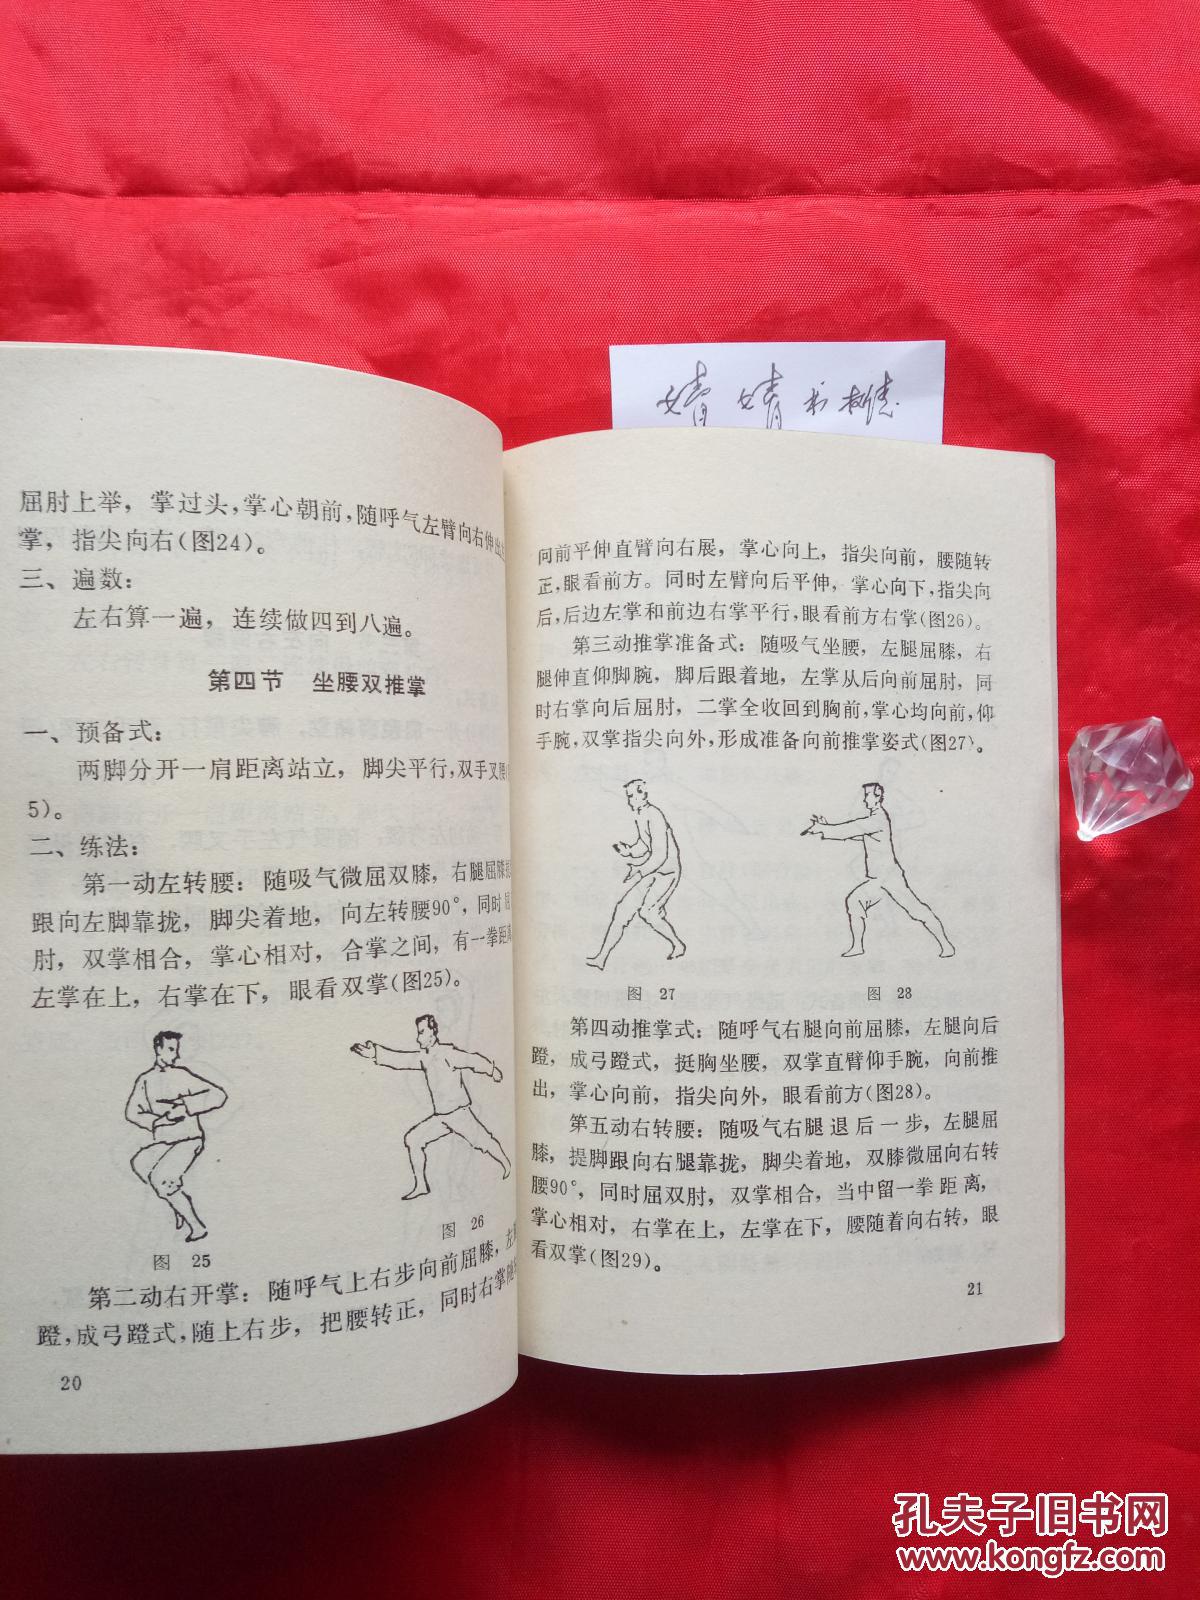 婧婧书
屈肘上举，掌过头，掌心朝前，随呼气左臂向右伸出
掌，指尖向右(图24)。
三、遍数：
左右算一遍，连续做四到八遍。
第四节 坐腰双推掌
一、预备式：
两脚分开一肩距离站立，脚尖平行，双手叉腰(
5)。
二、练法：
第一动左转腰：随吸气微屈双膝，右腿屈膝
跟向左脚靠拢，脚尖着地，向左转腰90°，同时屈
肘，双掌相合，掌心相对，合掌之间，有一拳距离
左掌在上，右掌在下，眼看双掌(图25)。
图 25
图 26
第二动右开掌：随呼气上右步向前屈膝，左
蹬，成弓蹬式，随上右步，把腰转正，同时右掌随
20
向前平伸直臂向右展，掌心向上，指尖向前，腰随转
正，眼看前方。同时左臂向后平伸，掌心向下，指尖向
后，后边左掌和前边右掌平行，眼看前方右掌(图26)。
第三动推掌准备式：随吸气坐腰，左腿屈膝，右
腿伸直仰脚腕，脚后跟着地，左掌从后向前屈肘，同
时右掌向后屈肘，二掌全收回到胸前，掌心均向前，仰
手腕，双掌指尖向外，形成准备向前推掌姿式(图27)。
图 27
图 28
第四动推掌式：随呼气右腿向前屈膝，左腿向后
蹬，成弓蹬式，挺胸坐腰，双掌直臂仰手腕，向前推
出，掌心向前，指尖向外，眼看前方(图28)。
第五动右转腰：随吸气右腿退后一步，左腿屈
膝，提脚跟向右腿靠拢，脚尖着地，双膝微屈向右转
腰90°，同时屈双肘，双掌相合，当中留一拳距离，
掌心相对，右掌在上，左掌在下，腰随着向右转，眼
看双掌(图29)。
21
孔夫子旧书网
www.kongfz.com